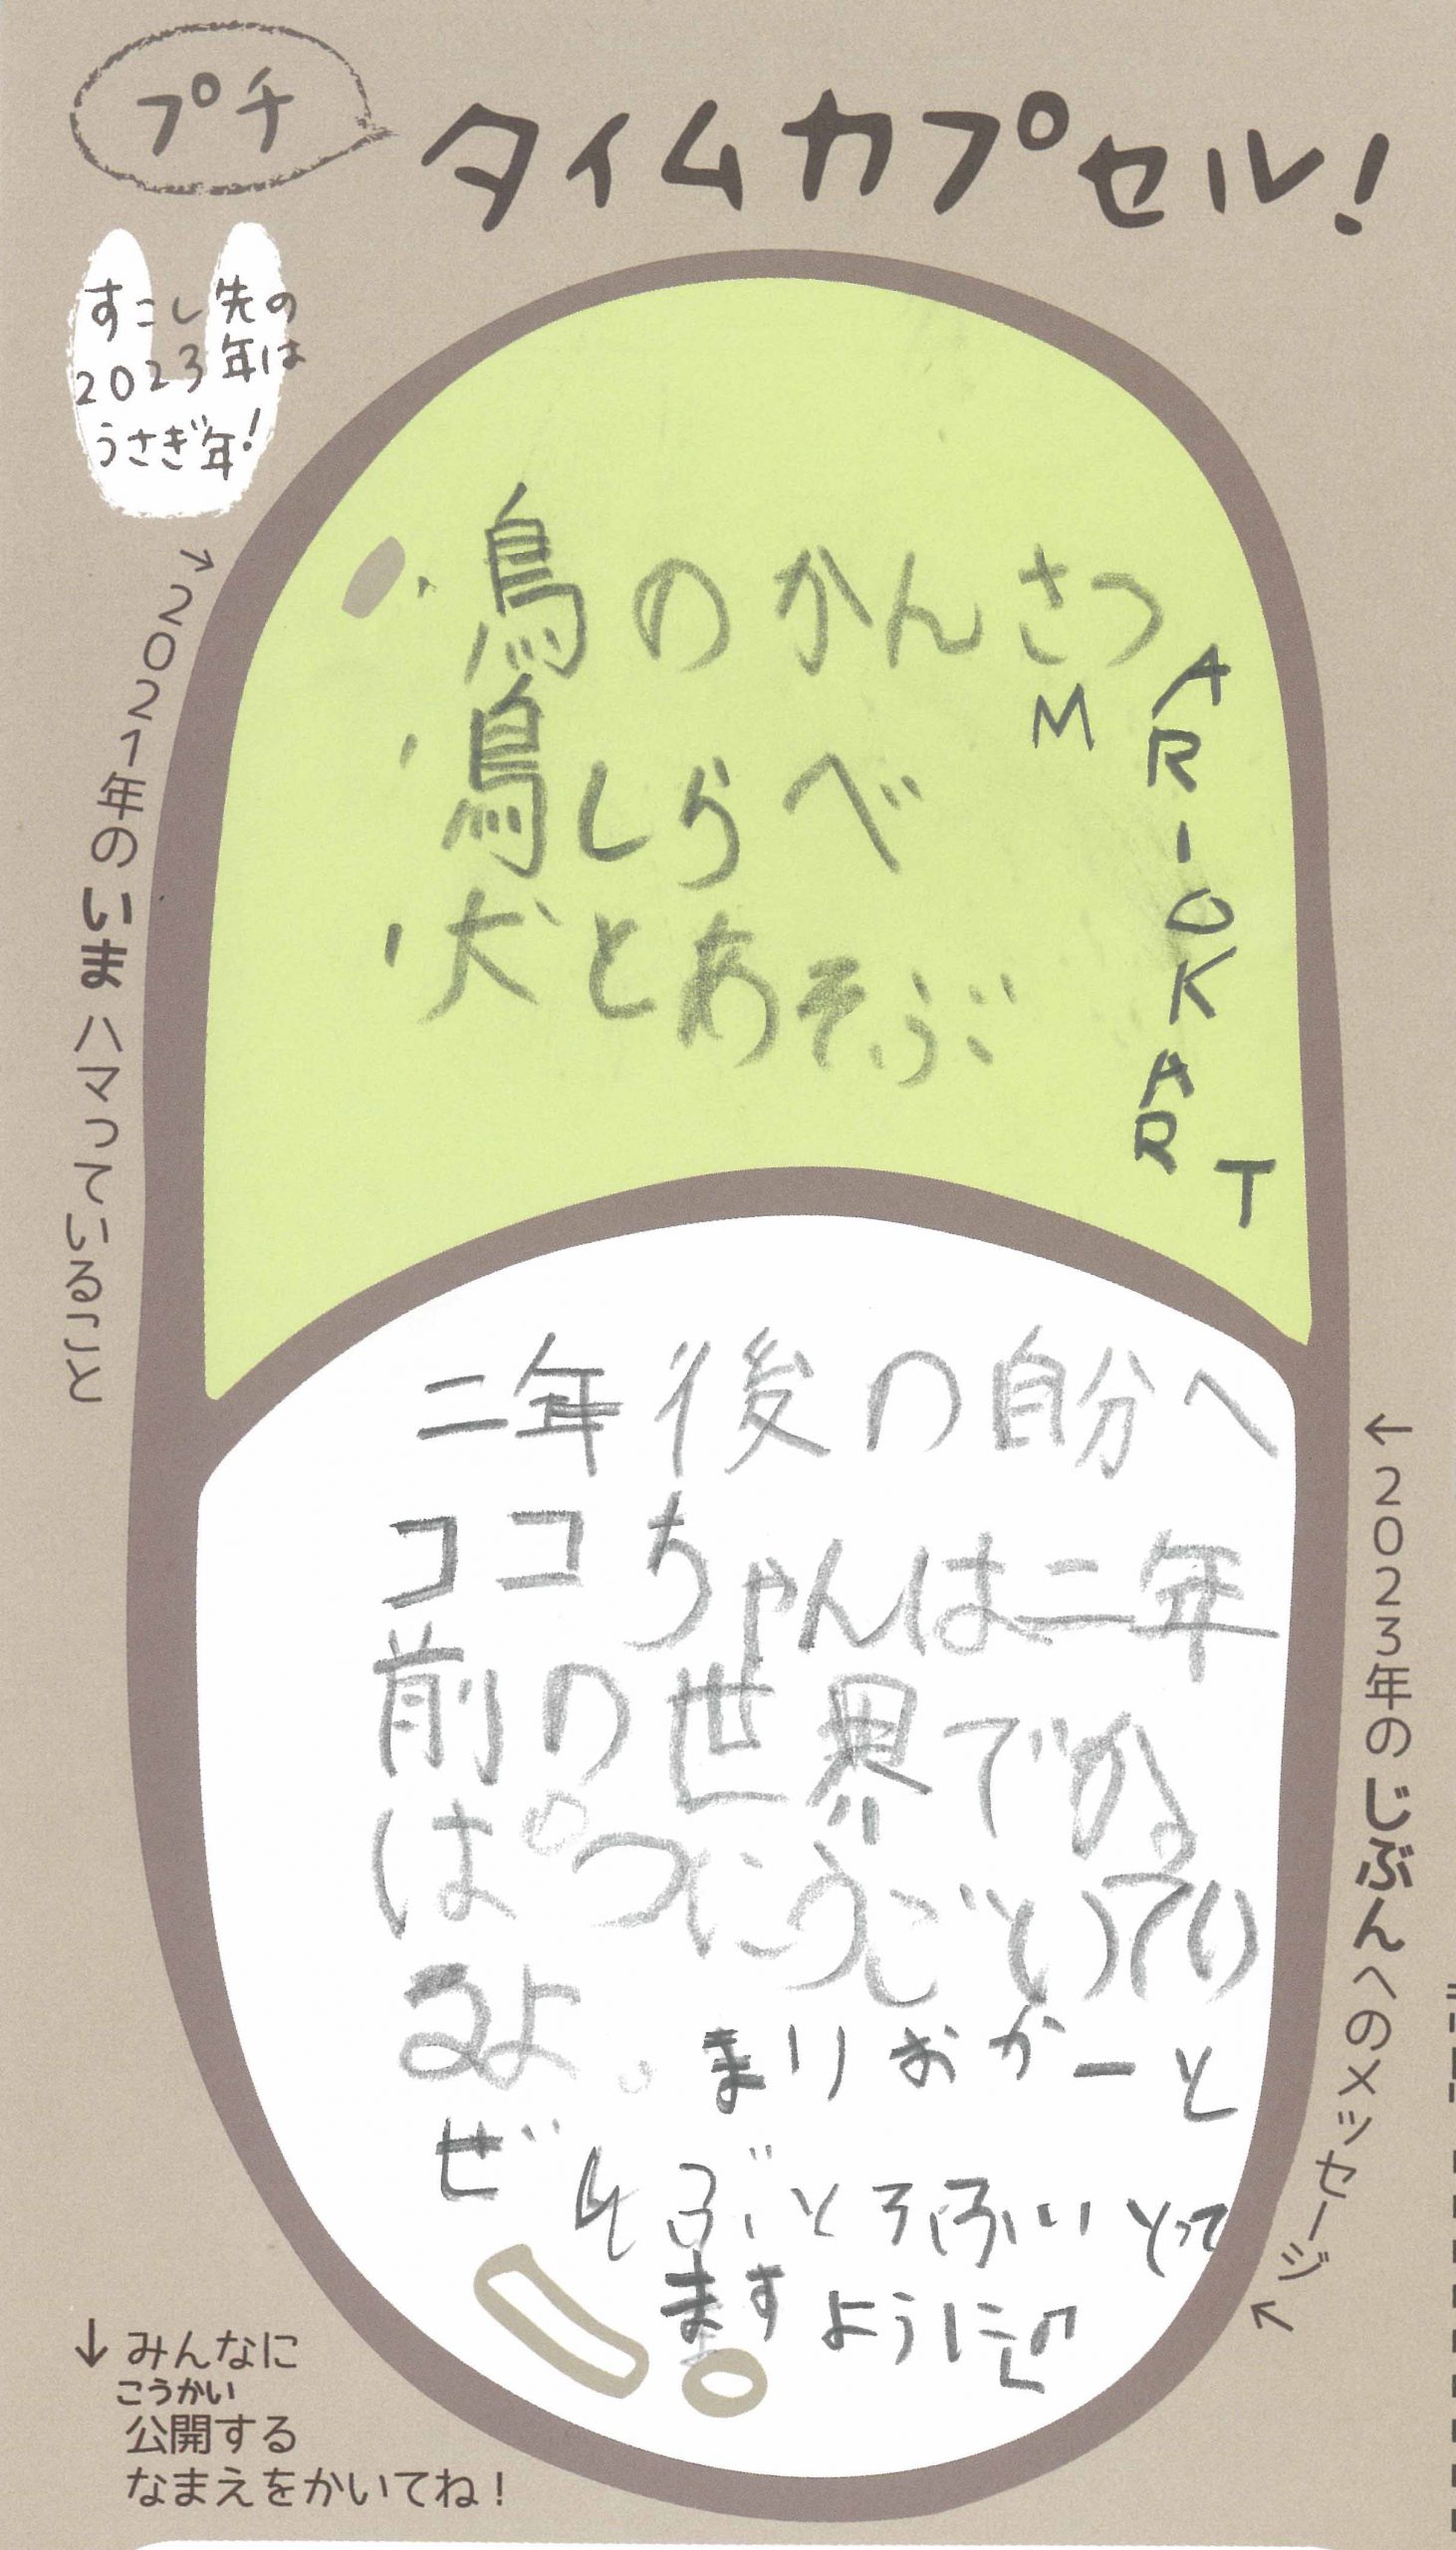 プチ
タイムカプセル!
すこし先の
2023年は
うさぎ年!
→2021年のいまハマっていること
・鳥のかんさつ
・鳥しらべ
・犬とあそぶ
MARIOKART
←2023年のじぶんへのメッセージ
二年後の自分へ
ココちゃんは二年
前の世界でか
ぱつにうごいてい
るよ。
まりおかーと
ぜ
とろふぃ とって
ますように
↓みんなに
こうかい
公開する
なまえをかいてね!